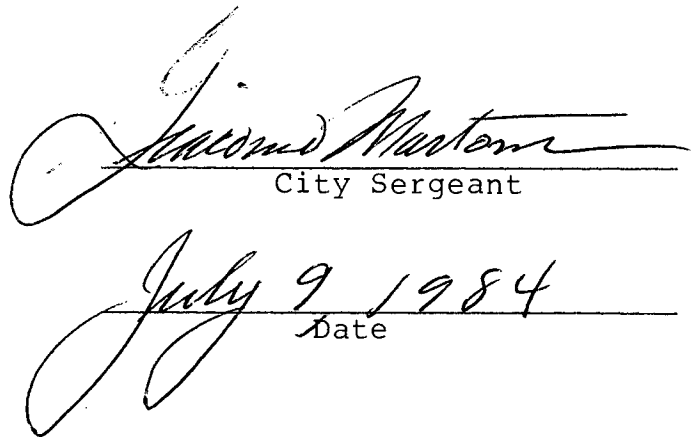 Giacomo
City Sergeant
July 9 1984
Date